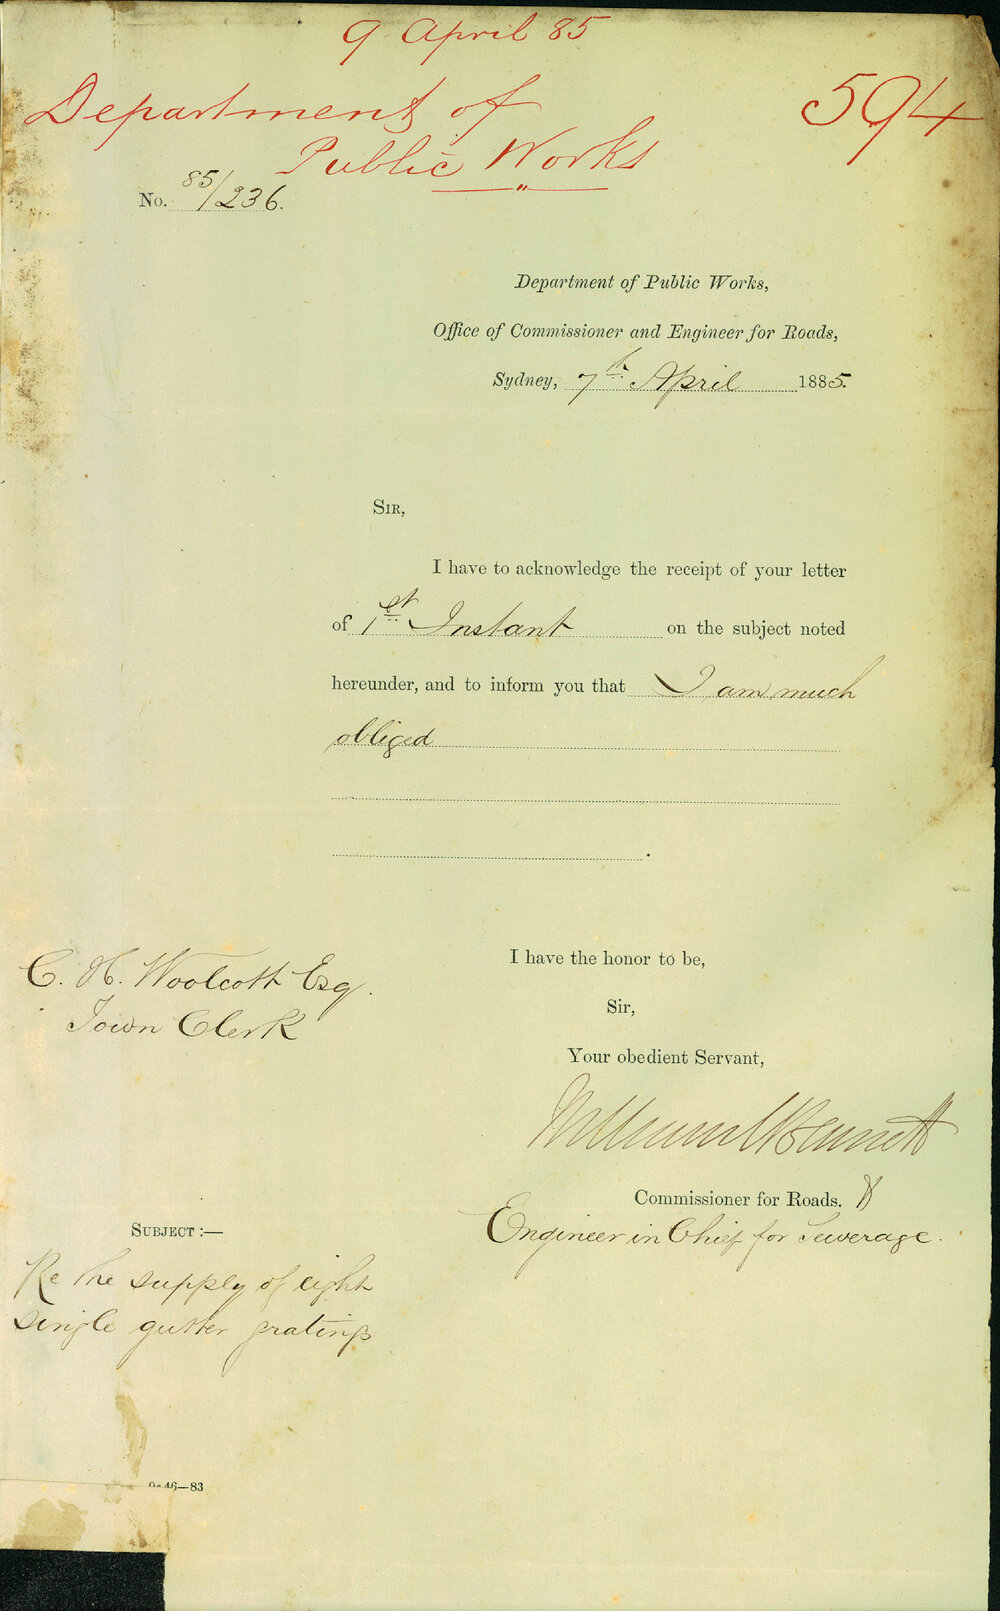 9 April 85
Department of
Public Works
594
No. 85/236.
Department of Public Works,
Office of Commissioner and Engineer for Roads,
Sydney, 7th April 1885.
SIR,
I have to acknowledge the receipt of your letter
of 1st Instant on the subject noted
hereunder, and to inform you that I am much
obliged
C. H. Woolcott Esq.
Town Clerk
I have the honor to be,
Sir,
Your obedient Servant,
Bennett
Commissioner for Roads. &
Engineer in Chief for Sewerage.
SUBJECT :—
Re the supply of eight
single gutter gratings
46—83